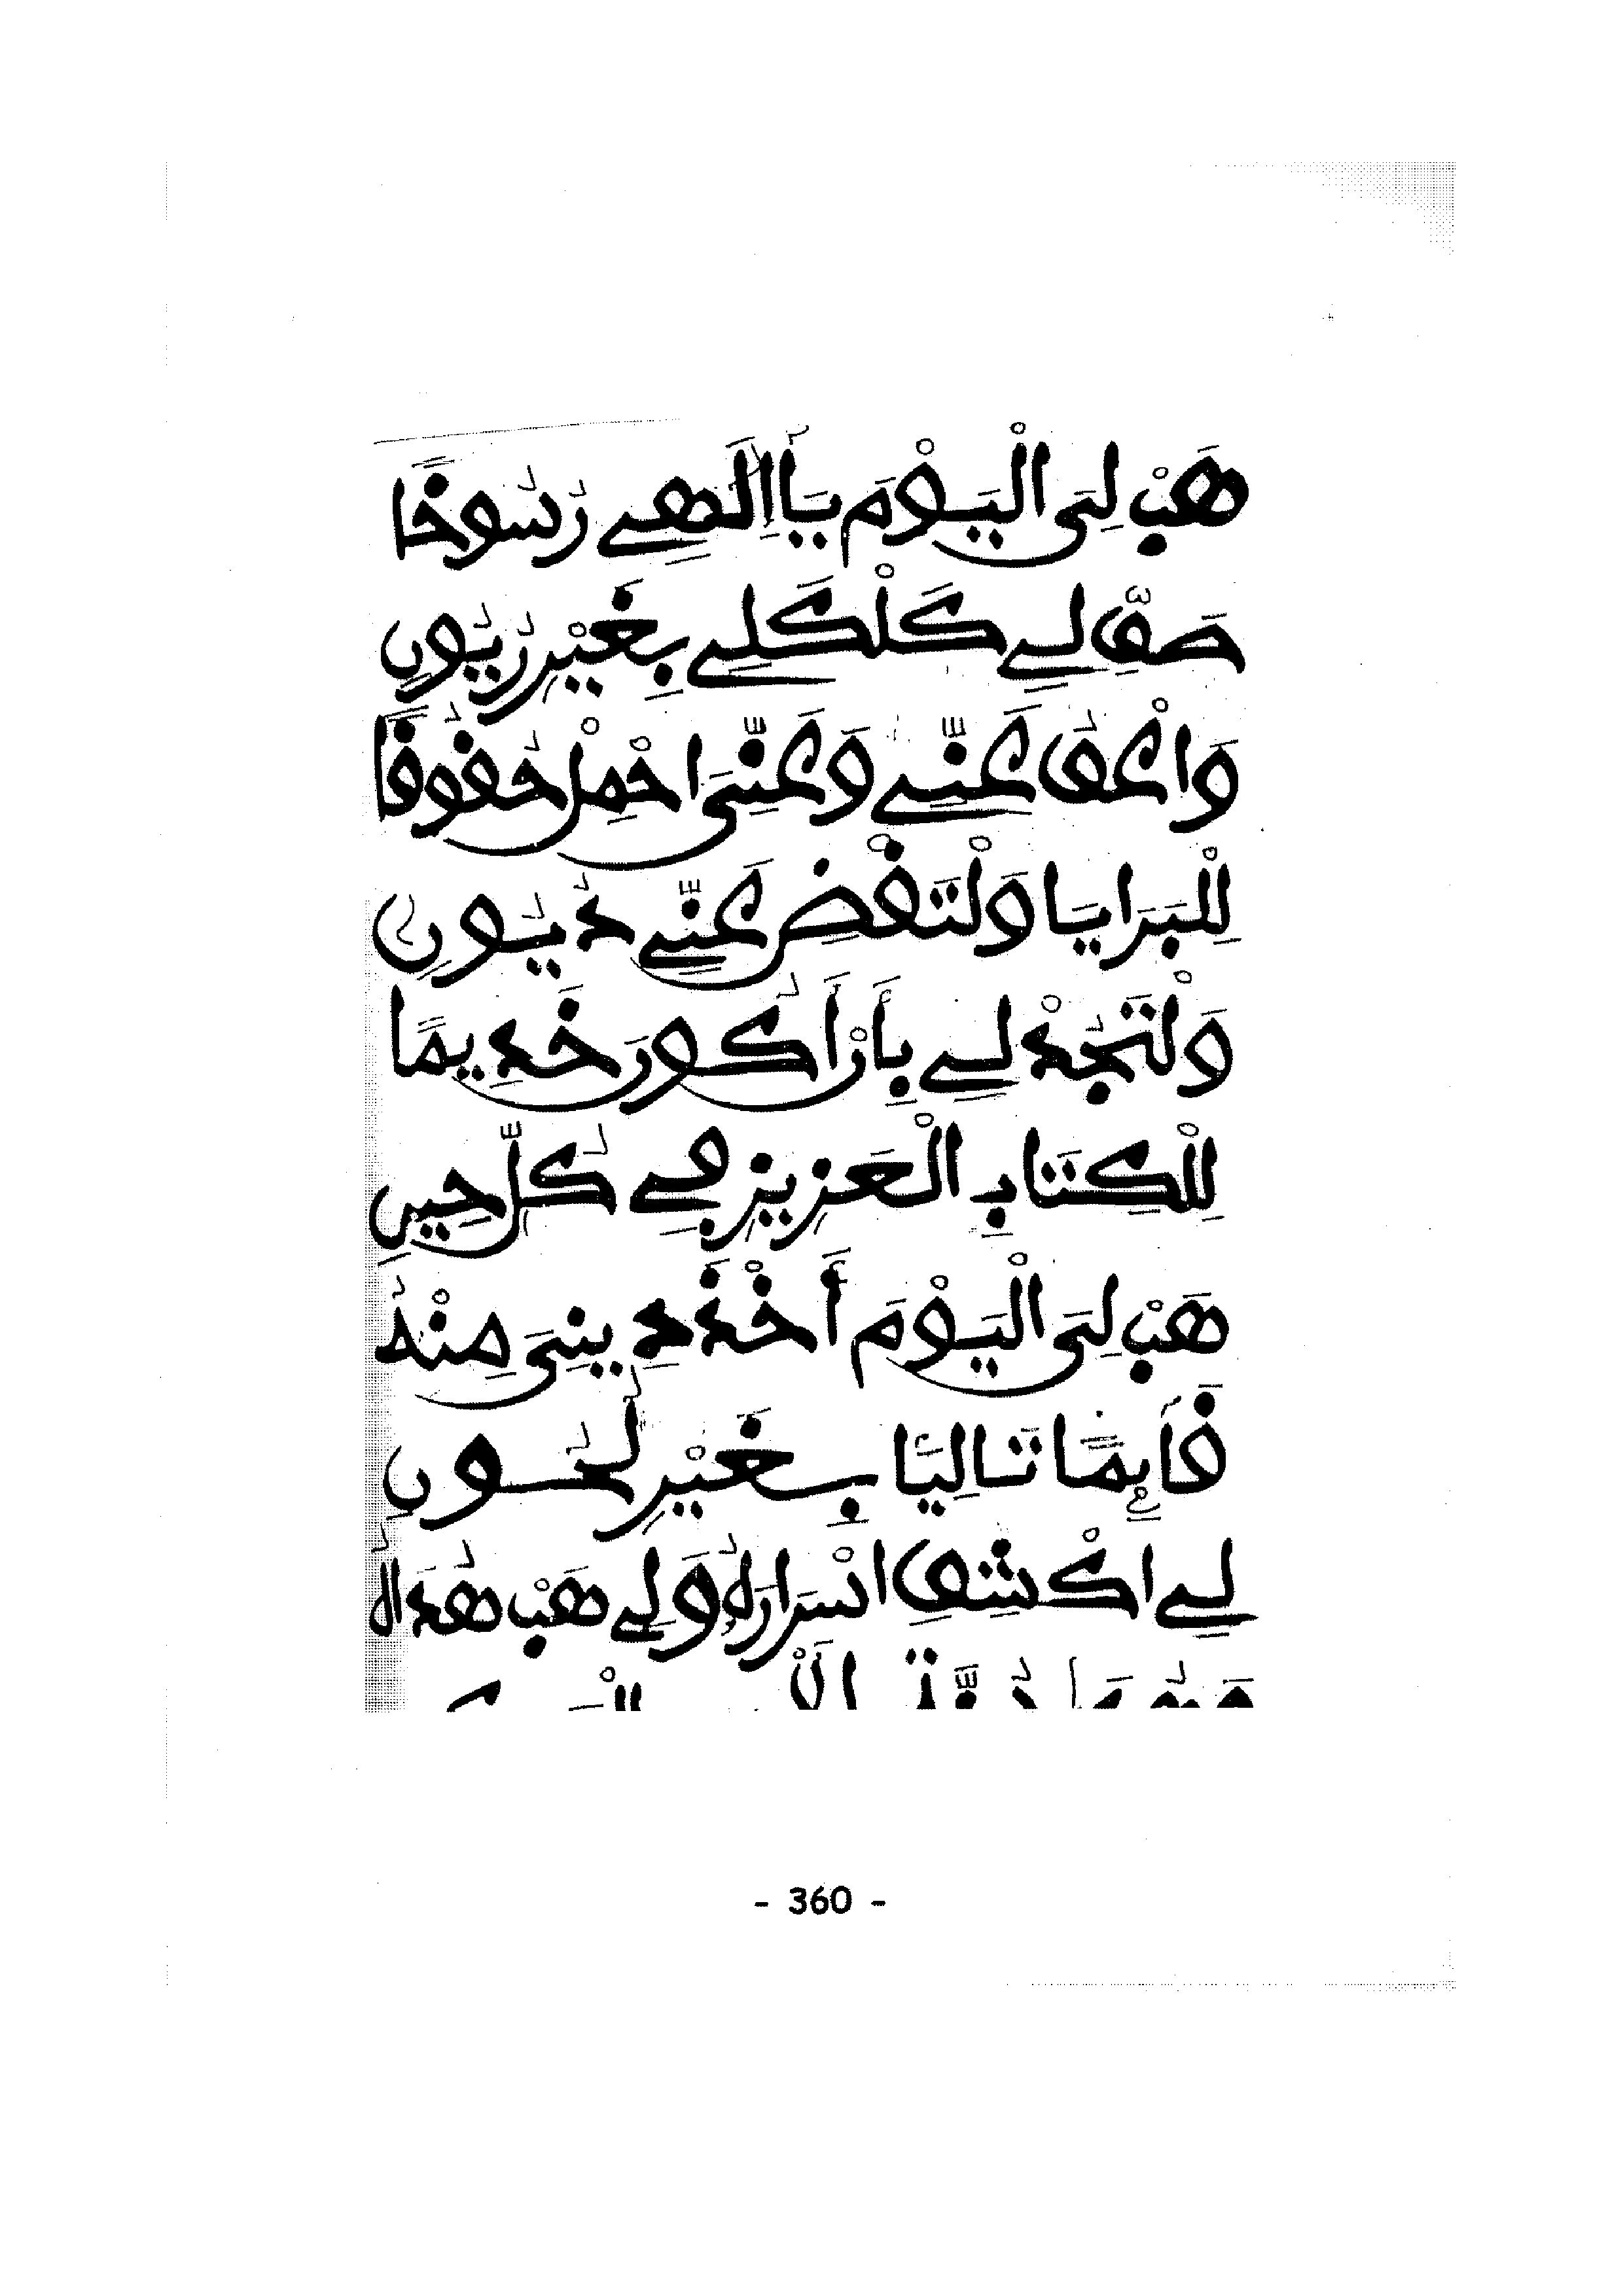 هَبْ لِيَ الْيَوْمَ يَا إِلَهِي رُسُوخًا
صَفِّ لِي كَلْكَلِي بِغَيْرِ رُيُونِ
وَاعْفُ عَنِّي وَعَنِّيَ احْمِلْ حُقُوقًا
لِلْبَرَايَا وَلْتَقْضِ عَنِّي دُيُونِ
وَلْتَجُدْ لِي بِأَنْ أَكُونَ خَدِيمًا
لِلْكِتَابِ الْعَزِيزِ فِي كُلِّ حِينِ
هَبْ لِيَ الْيَوْمَ أَخْذَ دِينِيَ مِنْهُ
قَائِمًا تَالِيًا بِغَيْرِ لُحُونِ
لِي اكْشِفِ اسْرَارَهُ وَلِي هَبْ هُدَاهُ
- 360 -